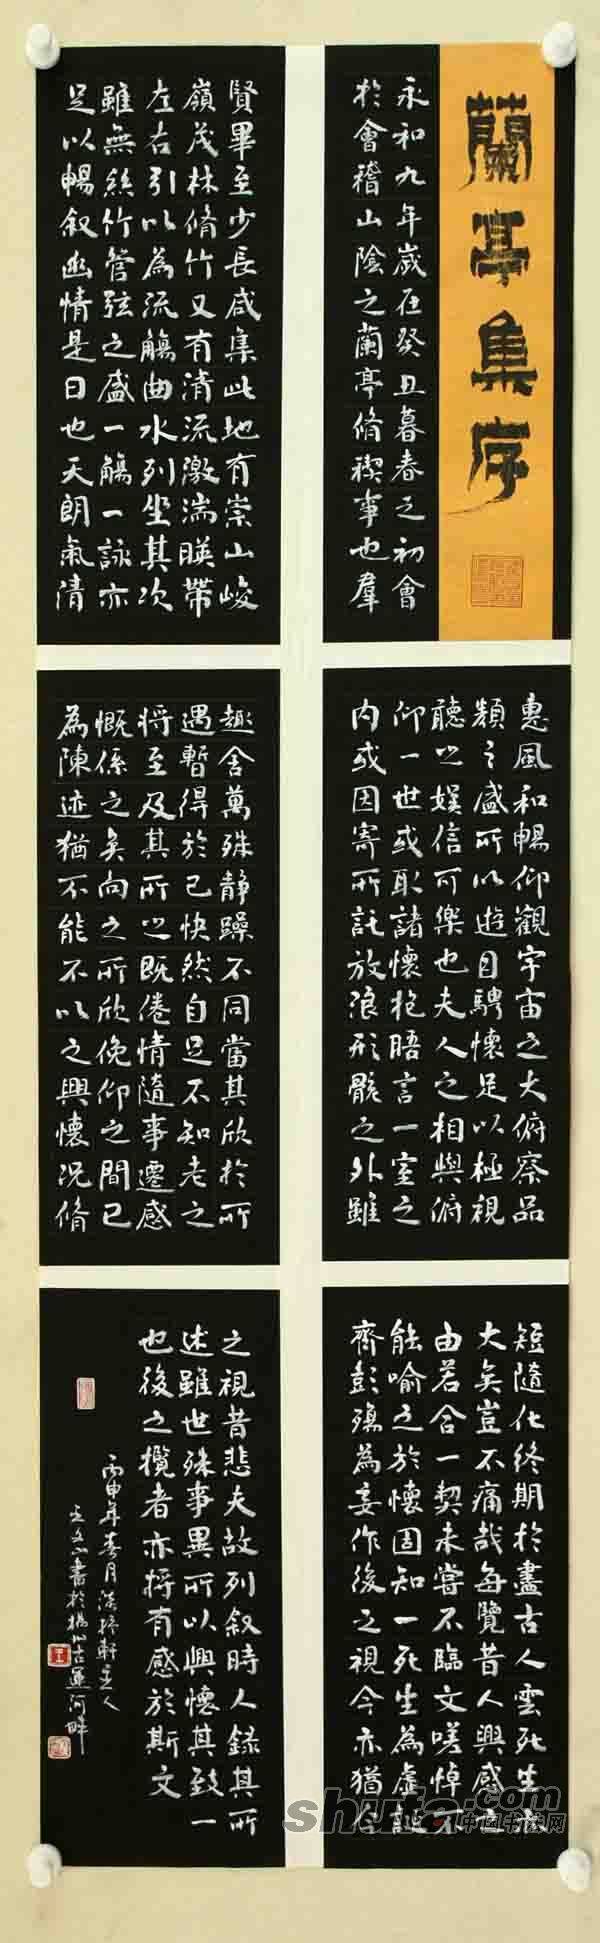 蘭亭集序
永和九年歲在癸丑暮春之初會
於會稽山陰之蘭亭脩禊事也羣
賢畢至少長咸集此地有崇山峻
嶺茂林脩竹又有清流激湍暎帶
左右引以為流觴曲水列坐其次
雖無絲竹管弦之盛一觴一詠亦
足以暢叙幽情是日也天朗氣清
惠風和暢仰觀宇宙之大俯察品
類之盛所以遊目騁懷足以極視
聽之娛信可樂也夫人之相與俯
仰一世或取諸懷抱晤言一室之
內或因寄所託放浪形骸之外雖
趣舍萬殊靜躁不同當其欣於所
遇暫得於己快然自足不知老之
將至及其所之既倦情隨事遷感
慨係之矣向之所欣俛仰之間已
為陳迹猶不能不以之興懷況脩
短隨化終期於盡古人雲死生亦
大矣豈不痛哉每覽昔人興感之
由若合一契未嘗不臨文嗟悼不
能喻之於懷固知一死生為虛誕
齊彭殤為妄作後之視今亦猶今
之視昔悲夫故列叙時人錄其所
述雖世殊事異所以興懷其致一
也後之攬者亦將有感於斯文
丙申年春月軒主人
書於揚州古運河畔
shufa.com
中国书法网